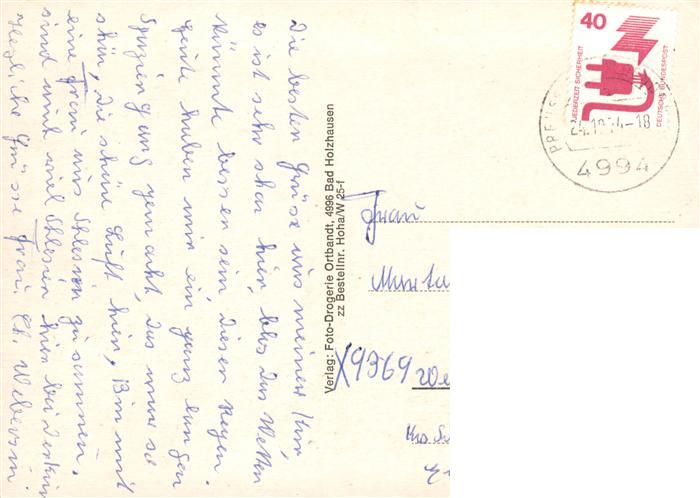 Die besten Grüße aus meiner Kur,
es ist sehr schön hier, blos das Wetter
könnte besser sein, dieser Regen.
heute haben wir ein ganz langen
Spaziergang gemacht, das war so
schön, die schöne Luft hier, Bin mit
eine Frau aus Schlesien zusammen.
sind und viel Schlesier hier bei der Kur
Herzliche Grüsse Frau
Verlag: Foto-Drogerie Ortbandt, 4996 Bad Holzhausen
zz BestellNr. Hoha/W 25-f
40
JEDERZEIT SICHERHEIT
DEUTSCHE BUNDESPOST
24.10.74-18
4994
Frau
X9369